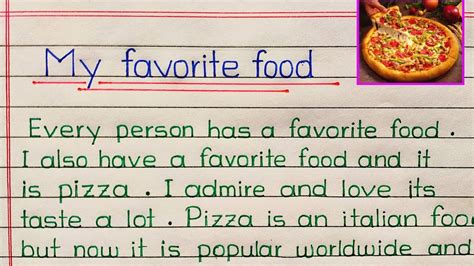 My favorite food
Every person has a favorite food .
I also have a favorite food and it
is pizza . I admire and love its
taste a lot . Pizza is an italian food
but now it is popular worldwide and